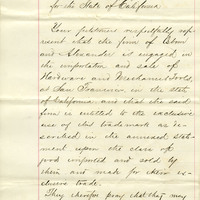 for the State of California
Your petitioners respectfully rep-
resent that the firm of
and Alexander is engaged in
the importation and sale of
Hardware and Mechanics Tools,
at San Francisco in the state
of California and that the said
firm is entitled to the exclusive
use of the trademark as de-
scribed in the annexed state-
ment upon the class of
good imported and sold by
them and made for their ex-
clusive trade.
They therefore pray that they may